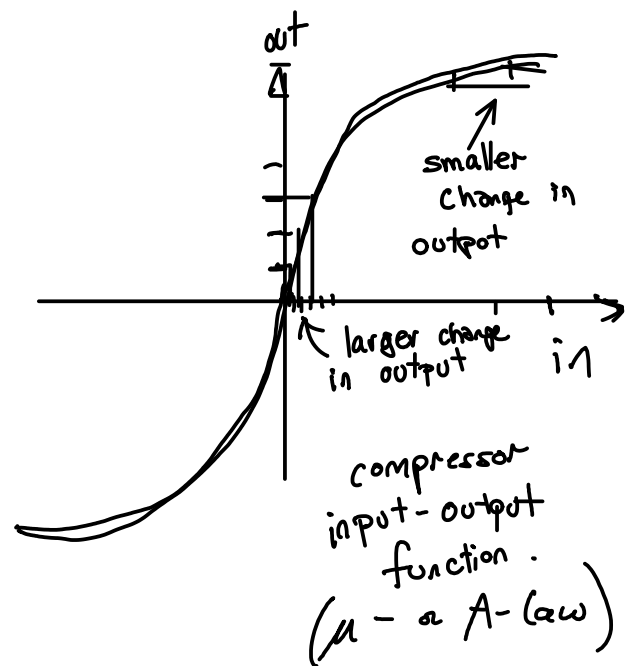 out
smaller
change in
output
larger change
in output
in
compressor
input-output
function.
(μ- or A-law)